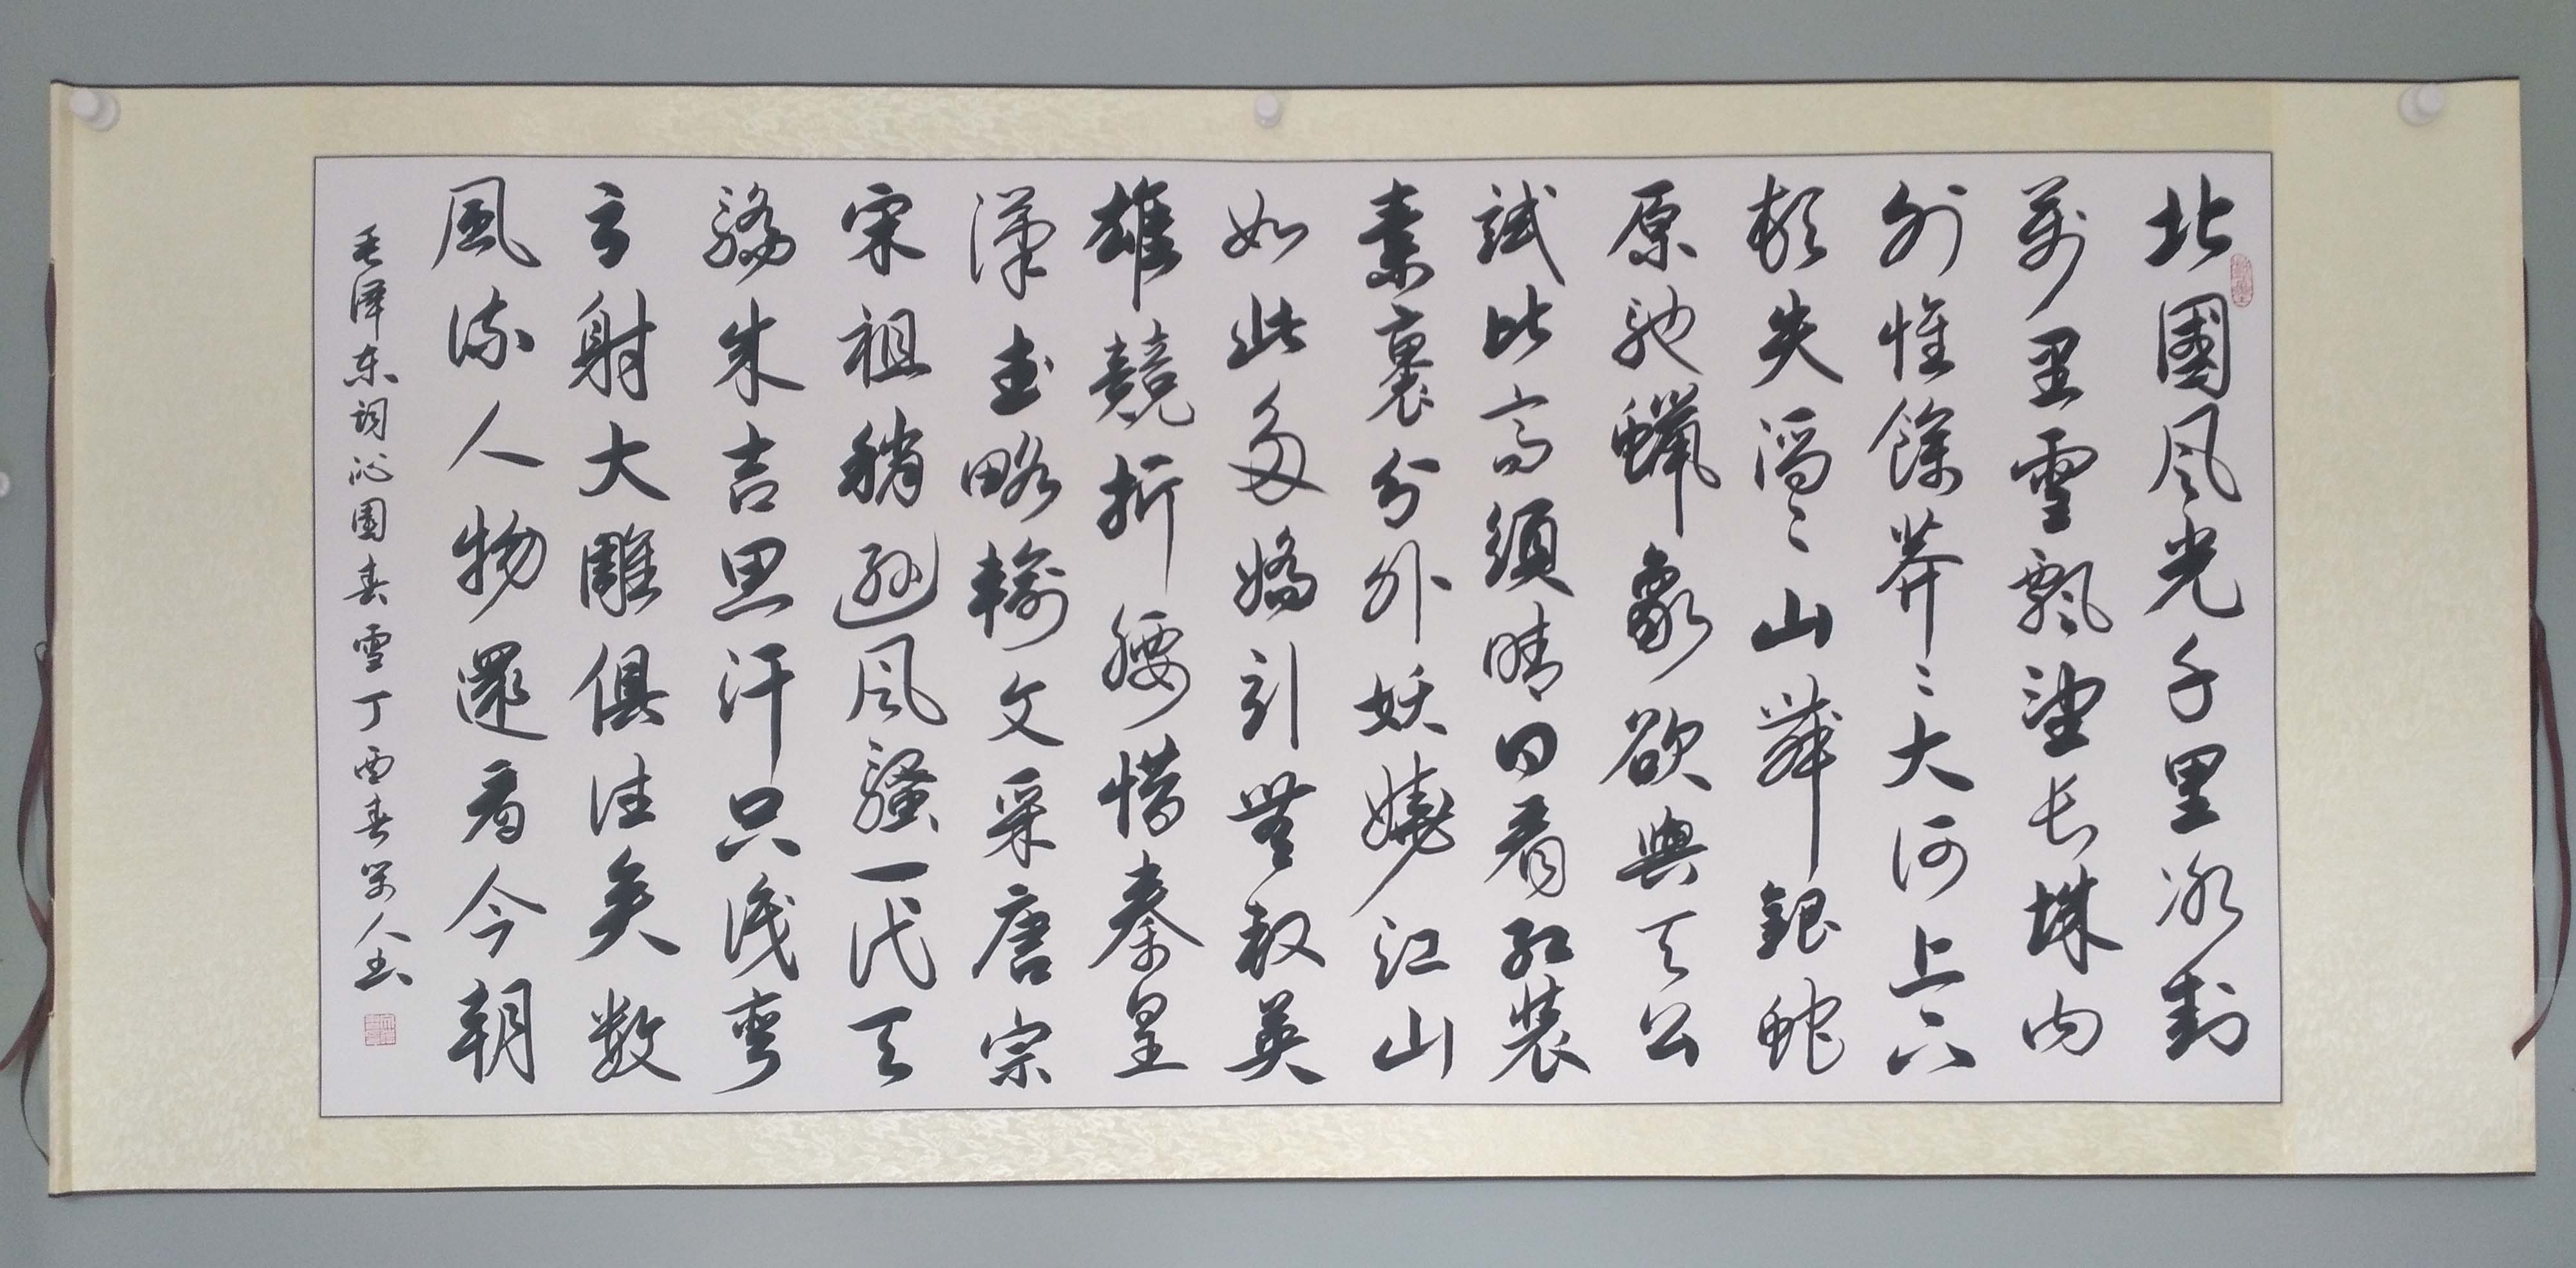 北國风光千里冰封
萬里雪飄望长城内
外惟餘莽〻大河上下
頓失滔〻山舞銀蛇
原馳蠟象欲與天公
試比高須晴日看红装
素裹分外妖嬈江山
如此多嬌引無数英
雄競折腰惜秦皇
漢武略輸文采唐宗
宋祖稍遜风騷一代天
驕成吉思汗只識彎
弓射大雕俱往矣数
風流人物還看今朝
毛泽东词沁園春雪丁酉春人书